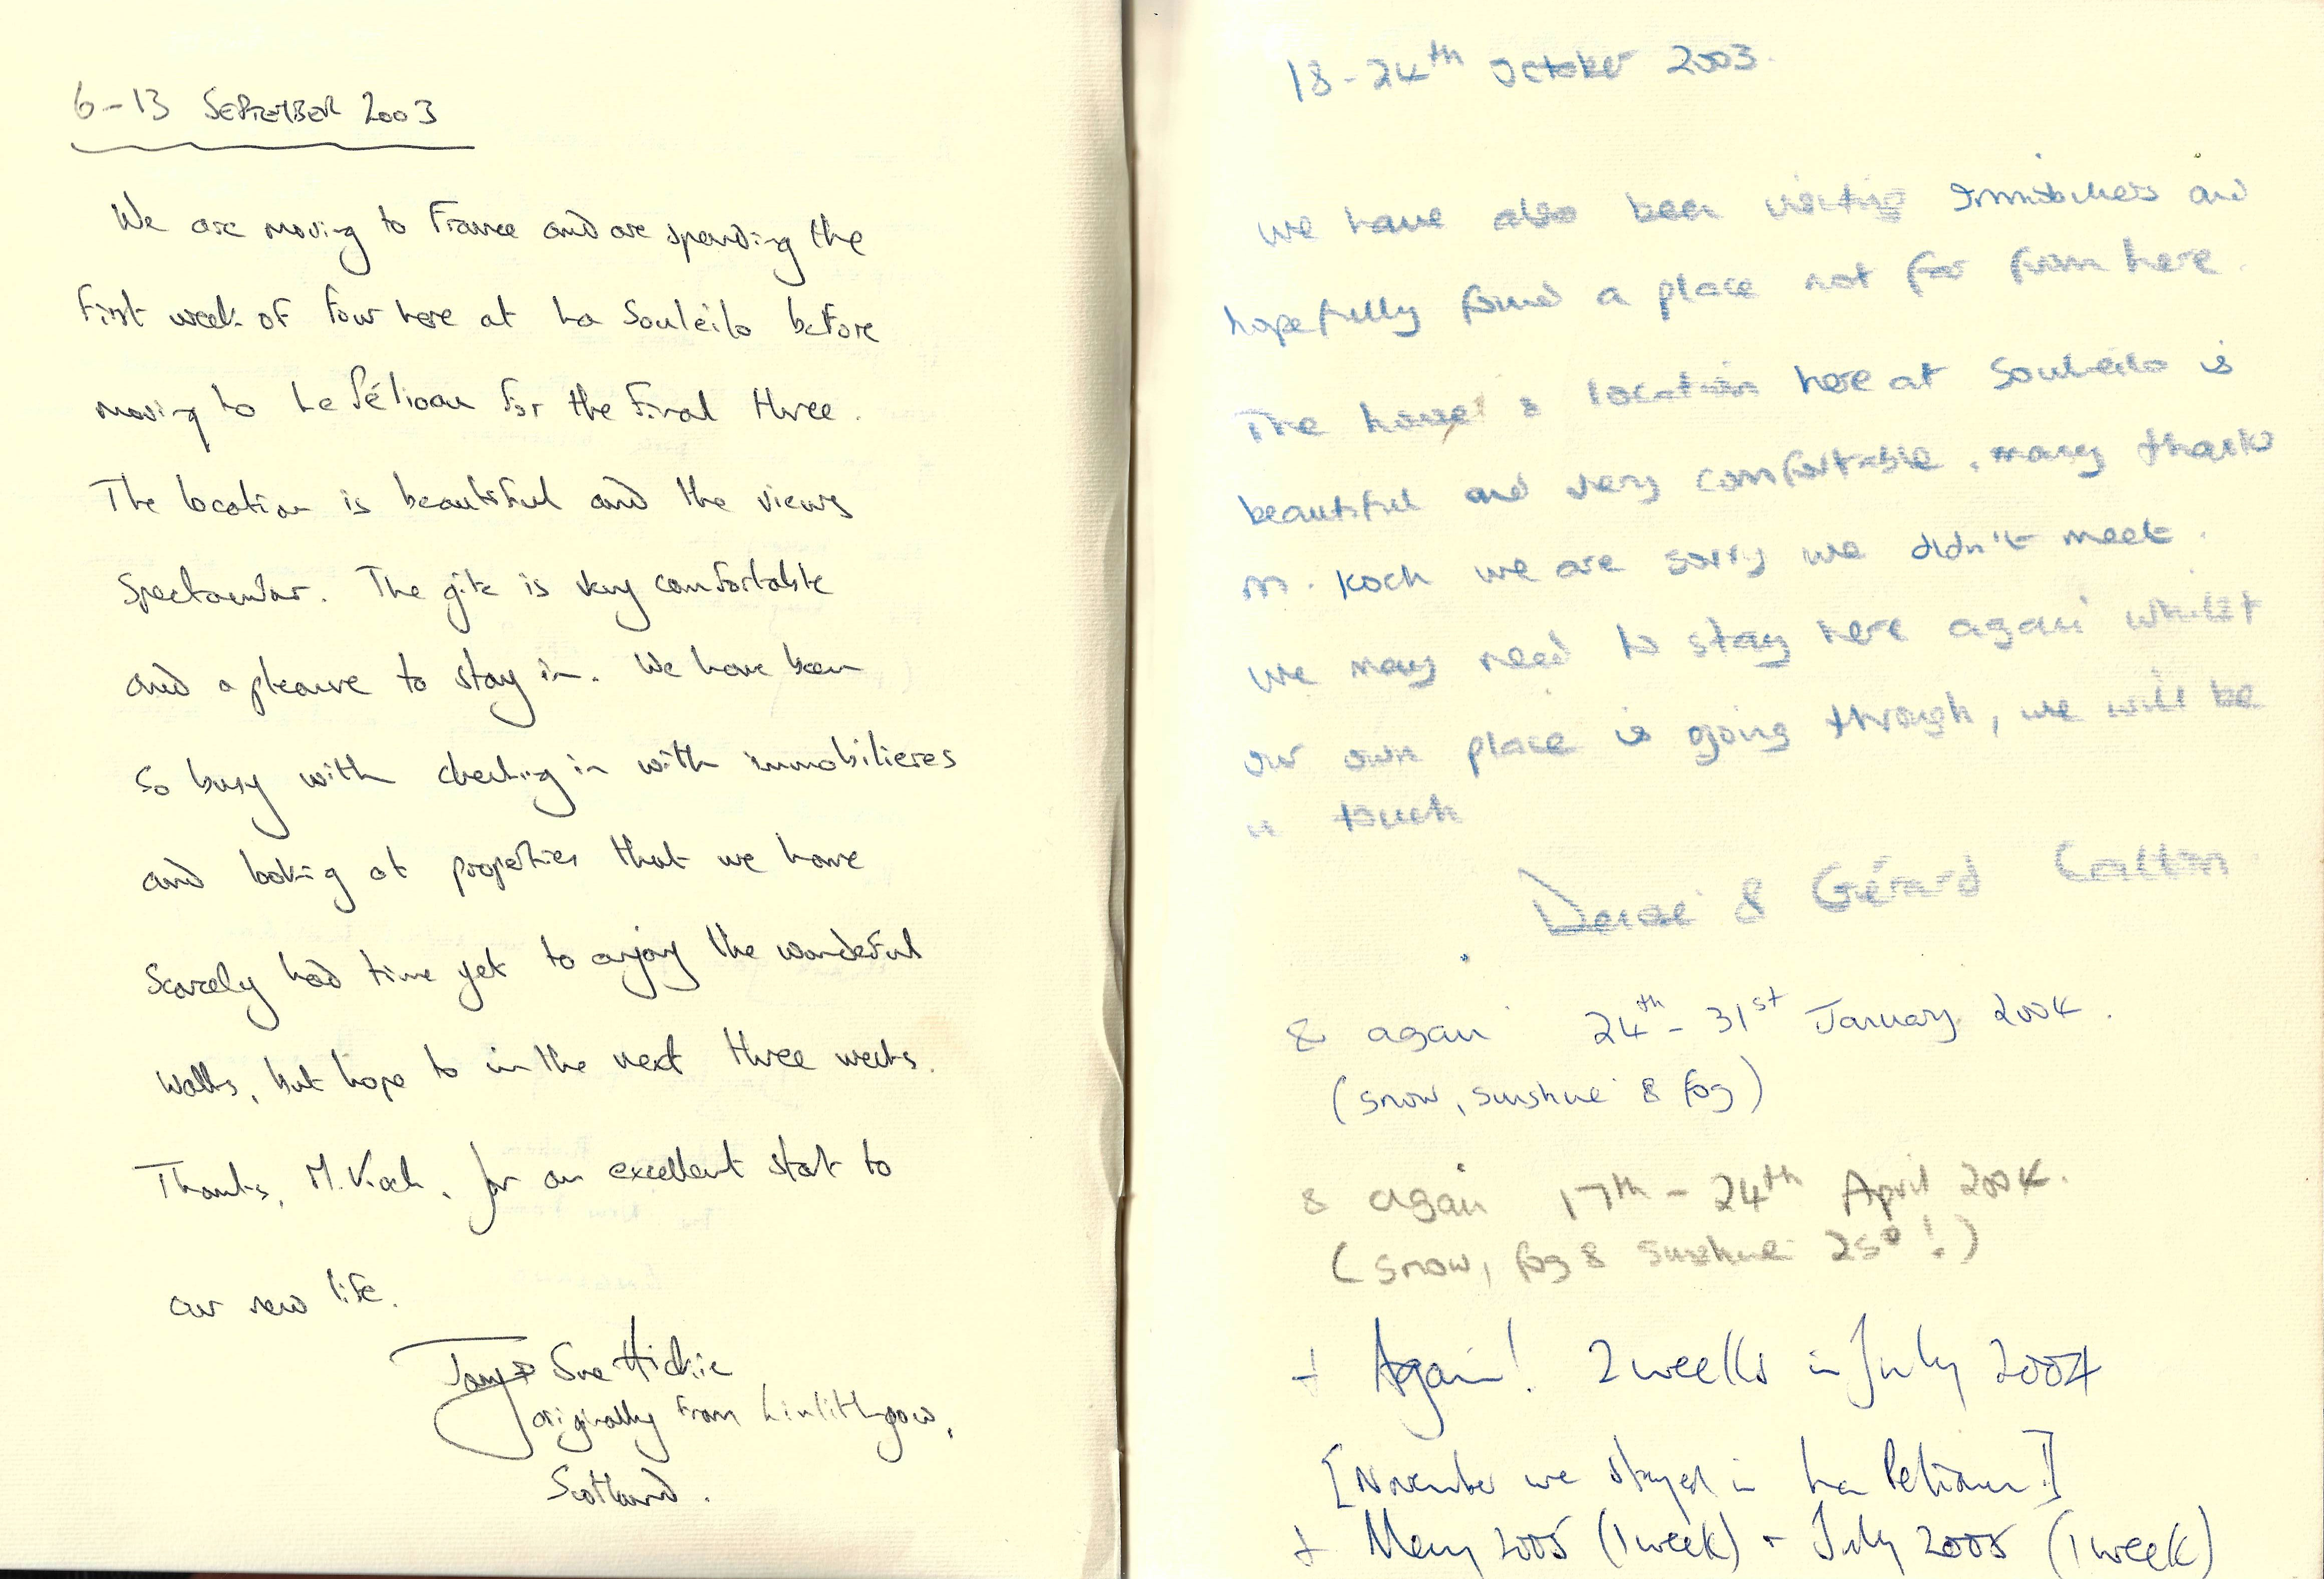 6-13 SEPTEMBER 2003
We are moving to France and are spending the
first week of four here at La Souleilo before
moving to Le Pélican for the final three.
The location is beautiful and the views
spectacular. The gite is very comfortable
and a pleasure to stay in. We have been
so busy with checking in with immobilieres
and looking at properties that we have
scarcely had time yet to enjoy the wonderful
walks, but hope to in the next three weeks.
Thanks, M. Koch, for an excellent start to
our new life.
Tony & Sue Hickie
originally from Linlithgow,
Scotland.
18-24th October 2003.
We have also been visiting Immobiliers and
hopefully found a place not far from here.
The house & location here at Souleilo is
beautiful and very comfortable, many thanks
M. Koch we are sorry we didn't meet.
We may need to stay here again whilst
our own place is going through, we will be
in touch
& Gérard
& again 24th - 31st January 2004.
(snow, sunshine & fog)
& again 17th - 24th April 2004.
(snow, fog & sunshine 25°!)
+ Again! 2 weeks in July 2004
[November we stayed in La]
+ May 2005 (1 week) + July 2005 (1 week)